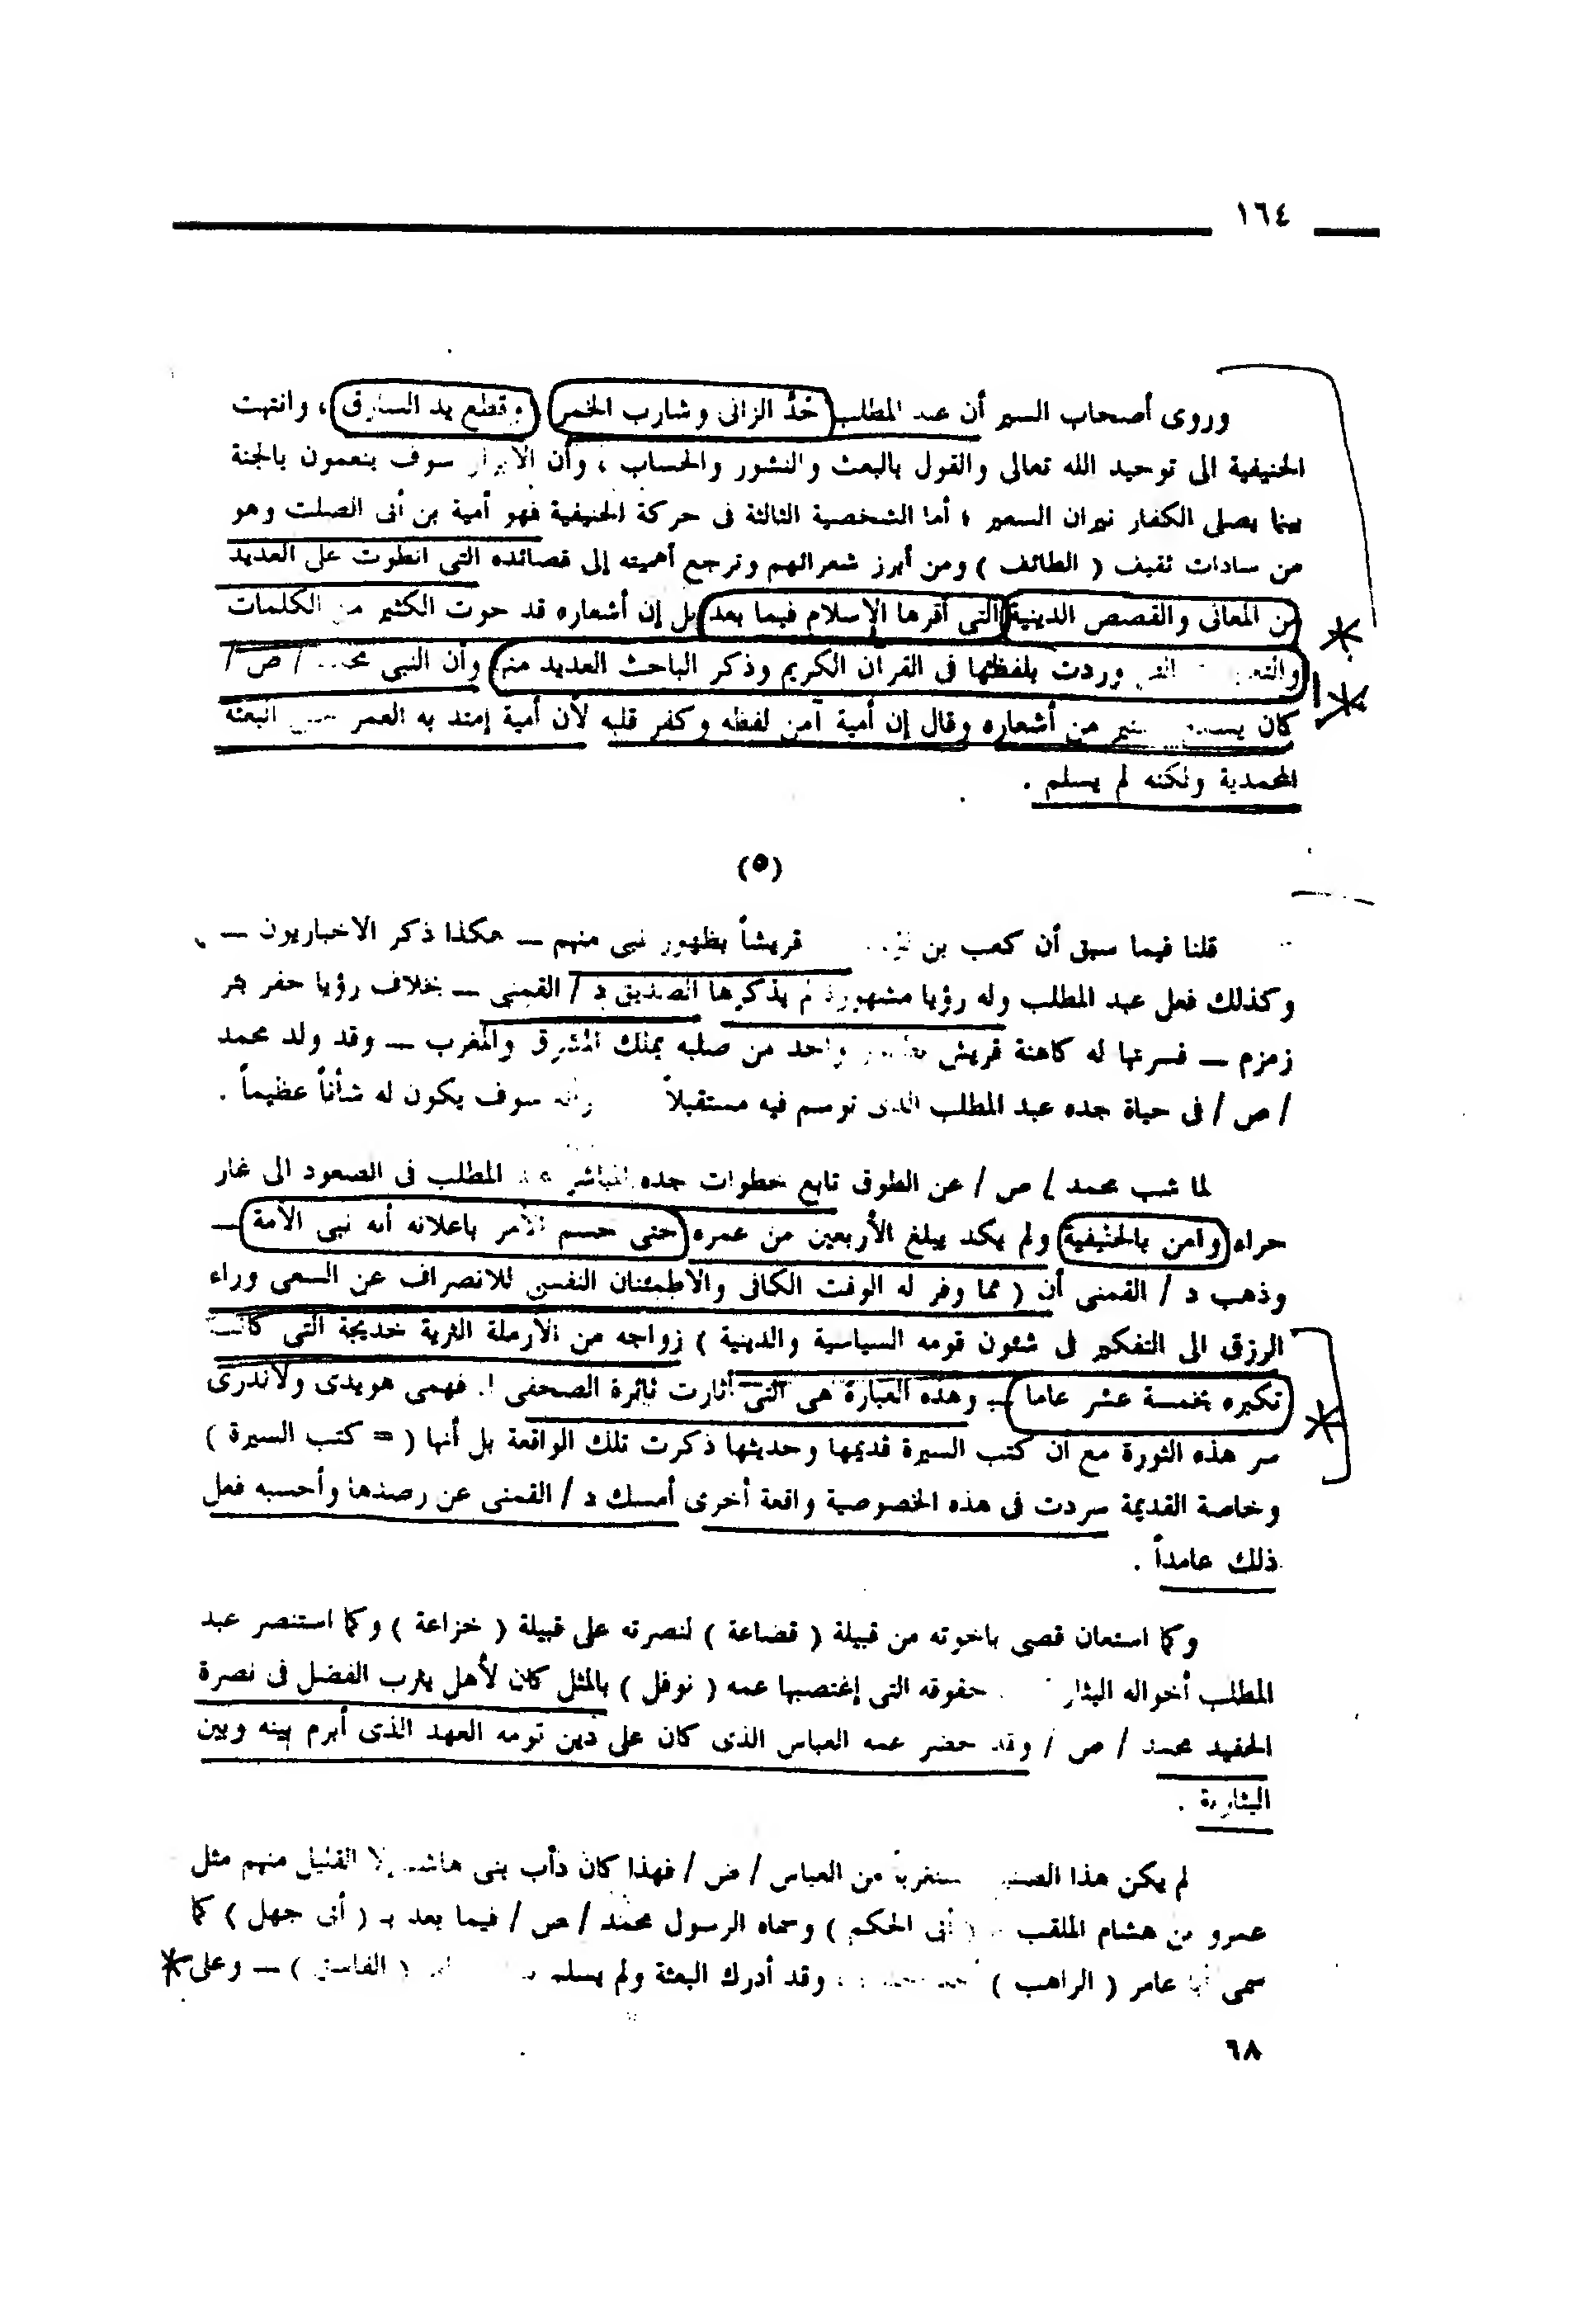 ١٦٤
وروى أصحاب السير أن عبد المطلب حدَّ الزانى وشارب الخمر وقطع يد السارق ، وانتهت
الحنيفية الى توحيد الله تعالى والقول بالبعث والنشور والحساب ، وأن الأبرار سوف ينعمون بالجنة
بينما يصلى الكفار نيران السعير ، أما الشخصية الثالثة فى حركة الحنيفية فهو أمية بن أبى الصلت وهو
من سادات ثقيف ( الطائف ) ومن أبرز شعرائهم وترجع أهميته إلى قصائده التى انطوت على العديد
من المعانى والقصص الدينية التى أقرها الإسلام فيما بعد بل إن أشعاره قد حوت الكثير من الكلمات
التى وردت بلفظها فى القرآن الكريم وذكر الباحث العديد منها وأن النبى محمد / ص /
كان من أشعاره وقال إن أمية آمن لفظه وكفر قلبه لأن أمية إمتد به العمر البعثة
المحمدية ولكنه لم يسلم .
(٥)
قلنا فيما سبق أن كعب بن قريشاً بظهور نبى منهم – هكذا ذكر الاخباريون –
وكذلك فعل عبد المطلب وله رؤيا مشهورة لم يذكرها الصديق د / القمنى – بخلاف رؤيا حفر بئر
زمزم – فسرتها له كاهنة قريش واحد من صلبه يملك المشرق والمغرب – وقد ولد محمد
/ ص / فى حياة جده عبد المطلب الذى توسم فيه مستقبلاً وأنه سوف يكون له شأناً عظيماً .
لما شب محمد / ص / عن الطوق تابع خطوات جده المباشر عبد المطلب فى الصعود الى غار
حراء وآمن بالحنيفية ولم يكد يبلغ الأربعين من عمره حتى حسم الأمر باعلانه أنه نبى الأمة –
وذهب د / القمنى أن ( مما وفر له الوقت الكافى والاطمئنان النفسى للانصراف عن السعى وراء
الرزق الى التفكير فى شئون قومه السياسية والدينية ) زواجه من الأرملة الثرية خديجة التى كانت
تكبره بخمسة عشر عاما – وهذه العبارة هى التى أثارت ثائرة الصحفى ا. فهمى هويدى ولاندرى
سر هذه الثورة مع أن كتب السيرة قديمها وحديثها ذكرت تلك الواقعة بل أنها ( = كتب السيرة )
وخاصة القديمة سردت فى هذه الخصوصية واقعة أخرى أمسك د / القمنى عن رصدها وأحسبه فعل
ذلك عامداً .
وكما استعان قصى باخوته من قبيلة ( قضاعة ) لنصرته على قبيلة ( خزاعة ) وكما استنصر عبد
المطلب أخواله حقوقه التى إغتصبها عمه ( نوفل ) بالمثل كان لأهل يثرب الفضل فى نصرة
الحفيد محمد / ص / وقد حضر عمه العباس الذى كان على دين قومه العهد الذى أبرم بينه وبين
اليثاربة .
لم يكن هذا الصنيع مستغرباً من العباس / ض / فهذا كان دأب بنى هاشم إلا القليل منهم مثل
عمرو بن هشام الملقب ( أبى الحكم ) وسماه الرسول محمد / ص / فيما بعد بـ ( أبى جهل ) كما
سمى أبا عامر ( الراهب ) وقد أدرك البعثة ولم يسلم ( الفاسق ) – وعلى
٦٨